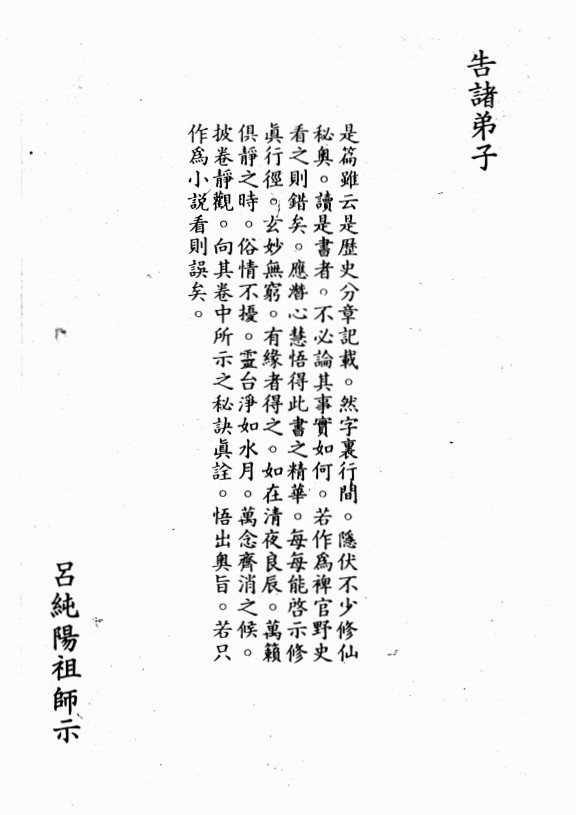 告諸弟子
是篇雖云是歷史分章記載。然字裏行間。隱伏不少修仙
秘奧。讀是書者。不必論其事實如何。若作為裨官野史
看之則錯矣。應潛心慧悟得此書之精華。每每能啓示修
眞行徑。玄妙無窮。有緣者得之。如在清夜良辰。萬籟
俱靜之時。俗情不擾。靈台淨如水月。萬念齊消之候。
披卷靜觀。向其卷中所示之秘訣眞詮。悟出奧旨。若只
作為小說看則誤矣。
呂純陽祖師示